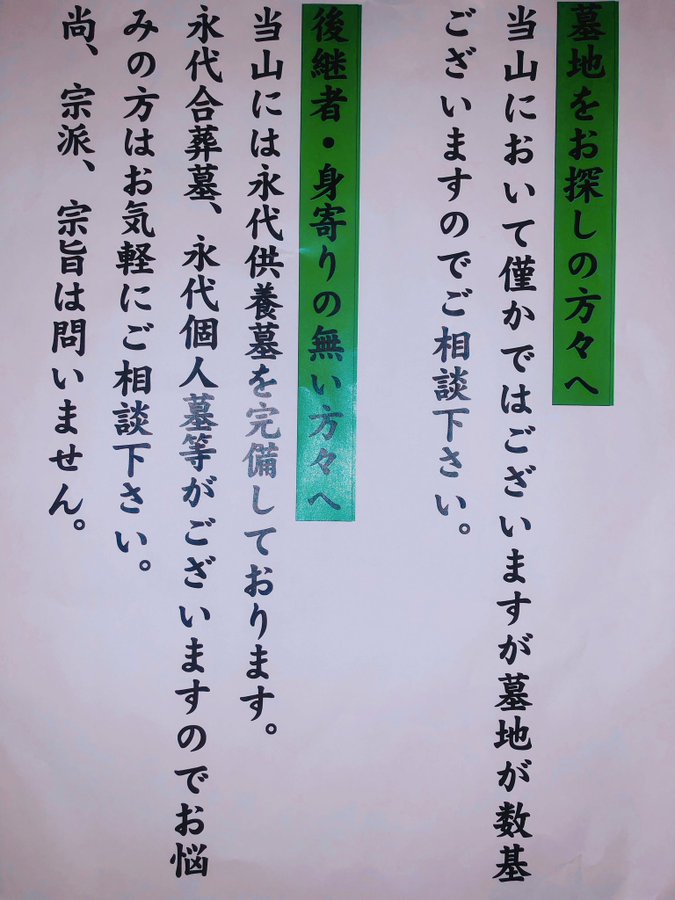 墓地をお探しの方々へ
当山において僅かではございますが墓地が数基
ございますのでご相談下さい。
後継者・身寄りの無い方々へ
当山には永代供養墓を完備しております。
永代合葬墓、永代個人墓等がございますのでお悩
みの方はお気軽にご相談下さい。
尚、宗派、宗旨は問いません。